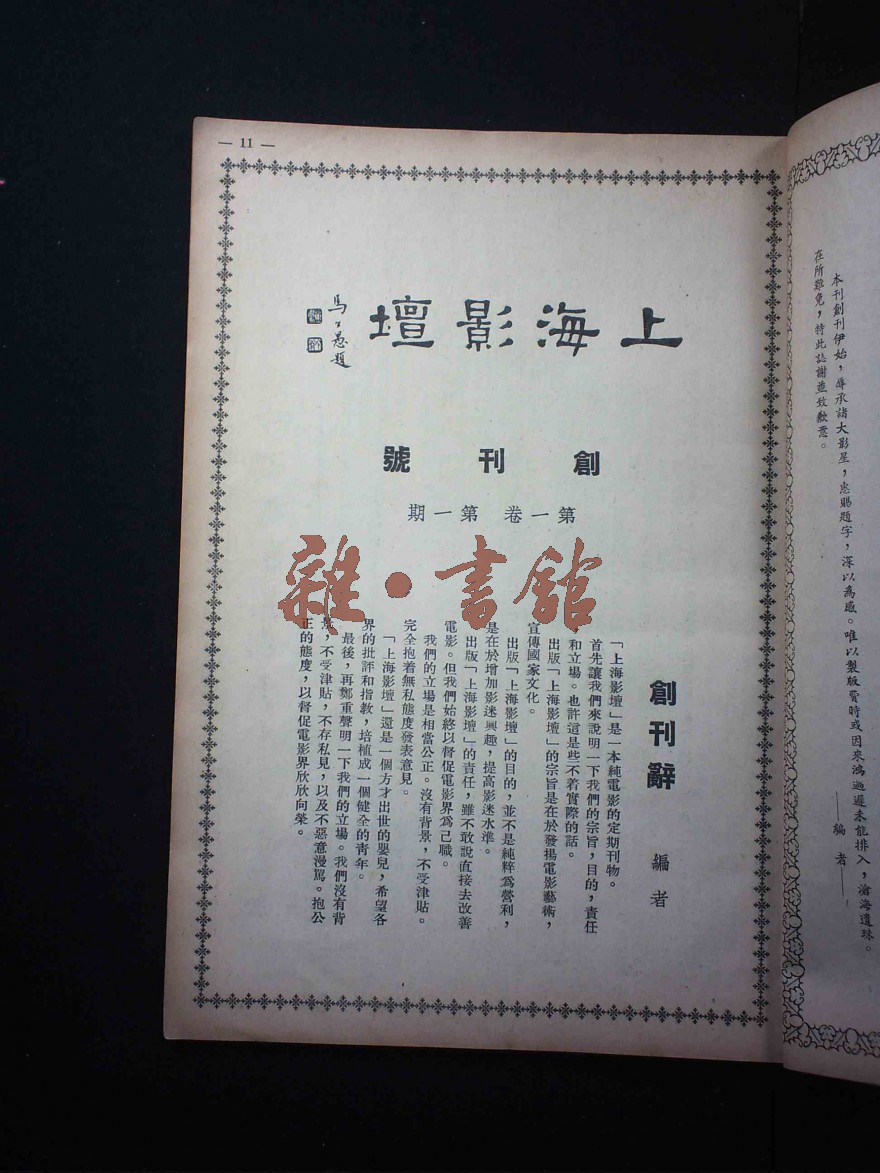 — 11 —
上海影壇
馬公愚題
創刊號
第一卷 第一期
雜·書館
創刊辭
編者
「上海影壇」是一本純電影的定期刊物。
首先讓我們來說明一下我們的宗旨,目的,責任
和立場。也許這是些不着實際的話。
出版「上海影壇」的宗旨是在於發揚電影藝術,
宣傳國家文化。
出版「上海影壇」的目的,並不是純粹爲營利,
是在於增加影迷興趣,提高影迷水準。
出版「上海影壇」的責任,雖不敢說直接去改善
電影。但我們始終以督促電影界爲己職。
我們的立場是相當公正。沒有背景,不受津貼。
完全抱着無私態度發表意見。
「上海影壇」還是一個方才出世的嬰兒,希望各
界的批評和指教,培植成一個健全的青年。
最後,再鄭重聲明一下我們的立場。我們沒有背
景,不受津貼,不存私見,以及不惡意漫罵。抱公
正的態度,以督促電影界欣欣向榮。
本刊創刊伊始,辱承諸大影星,惠賜題字,深以爲感。唯以製版費時或因來鴻過遲未能排入,滄海遺珠。
在所難免,特此誌謝並致歉意。
——編者——